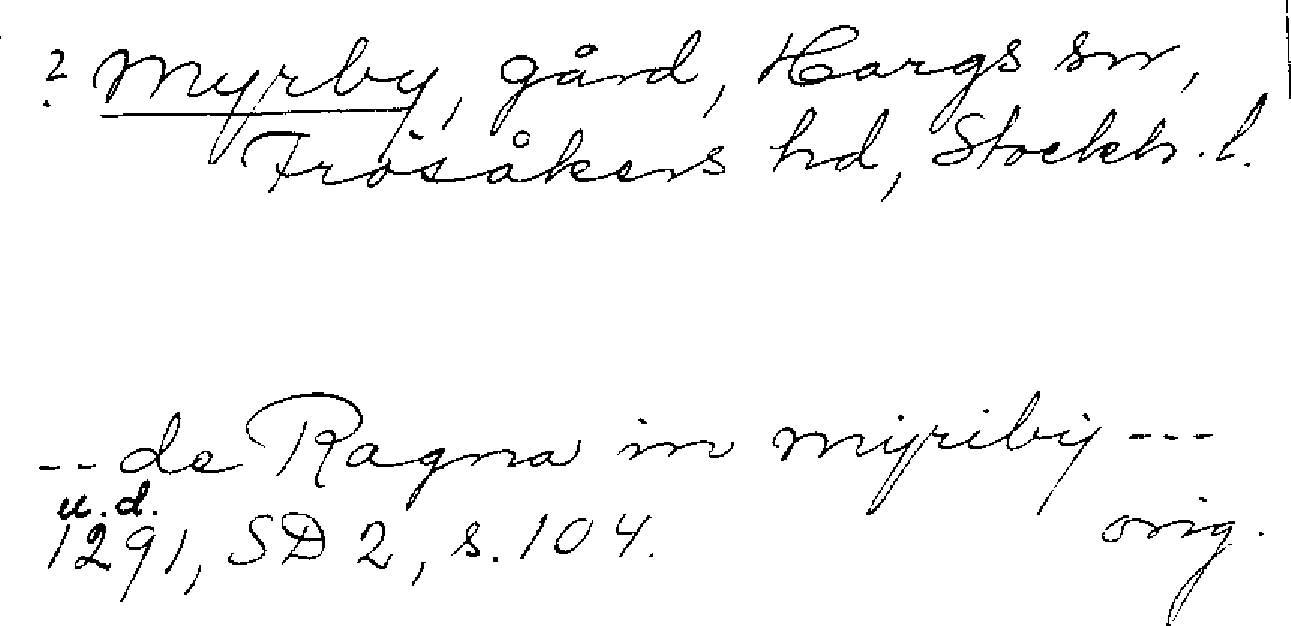 ? Myrby, gård, Hargs sn,
Frösåkers hd, Stockh. l.
-- de Ragna in myriby ---
u.d.
1291, SD 2, s. 104. orig.